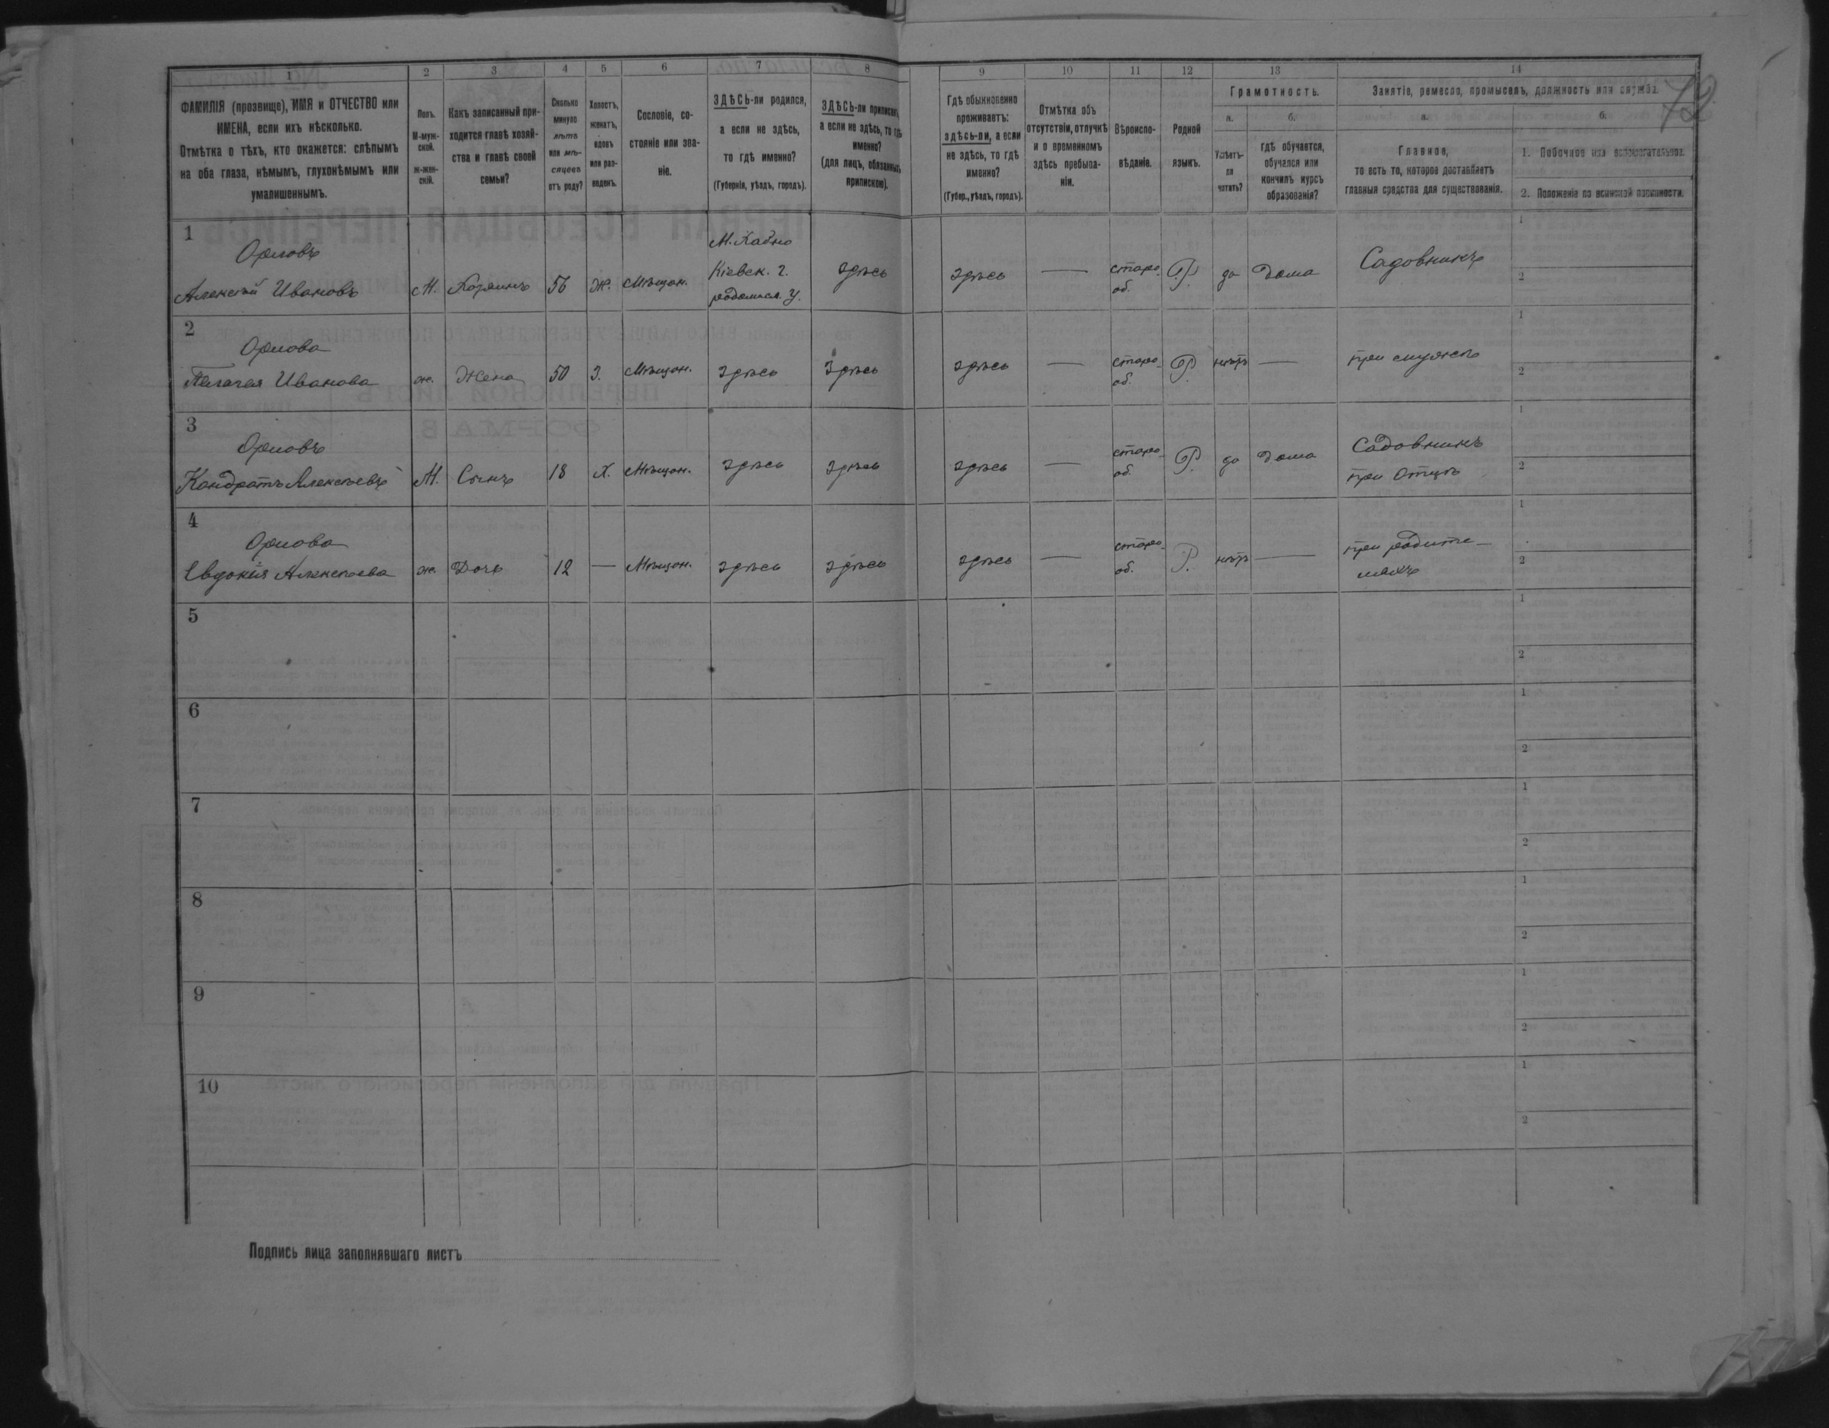 72
1 2 3 4 5 6 7 8 9 10 11 12 13 14
ФАМИЛІЯ (прозвище), ИМЯ и ОТЧЕСТВО или
ИМЕНА, если ихъ нѣсколько.
Отмѣтка о тѣхъ, кто окажется: слѣпымъ
на оба глаза, нѣмымъ, глухонѣмымъ или
умалишеннымъ.
Полъ.
М-муж-
ской.
ж-жен-
скій.
Какъ записанный при-
ходится главѣ хозяй-
ства и главѣ своей
семьи?
Сколько
минуло
лѣтъ
или мѣ-
сяцевъ
отъ роду?
Холостъ,
женатъ,
вдовъ
или раз-
веденъ.
Сословіе, со-
стояніе или зва-
ніе.
ЗДѢСЬ-ли родился,
а если не здѣсь,
то гдѣ именно?
(Губернія, уѣздъ, городъ).
ЗДѢСЬ-ли приписанъ,
а если не здѣсь, то гдѣ
именно?
(для лицъ, обязанныхъ
припискою).
Гдѣ обыкновенно
проживаетъ:
здѣсь-ли, а если
не здѣсь, то гдѣ
именно?
(Губер., уѣздъ, городъ).
Отмѣтка объ
отсутствіи, отлучкѣ
и о временномъ
здѣсь пребыва-
ніи.
Вѣроиспо-
вѣданіе.
Родной
языкъ.
Грамотность.
а.
Умѣетъ-
ли
читать?
б.
гдѣ обучается,
обучался или
кончилъ курсъ
образованія?
Занятіе, ремесло, промыселъ, должность или служба.
а.
Главное,
то есть то, которое доставляетъ
главныя средства для существованія.
б.
1. Побочное или вспомогательное.
2. Положеніе по воинской повинности.
1
Орловъ
Алексѣй Ивановъ
М. Хозяинъ 56 Ж. Мѣщан.
Кіевск. г.
здѣсь здѣсь — старо-
об.
Р. да Дома Садовникъ
1
2
2
Орлова
Пелагея Иванова
ж. Жена 50 З. Мѣщан. здѣсь здѣсь здѣсь — старо-
об.
Р. нѣтъ — при мужѣ
1
2
3
Орловъ
Кондратъ Алексѣевъ
М. Сынъ 18 Х. Мѣщан. здѣсь здѣсь здѣсь — старо-
об.
Р. да Дома Садовникъ
при Отцѣ
1
2
4
Орлова
Евдокія Алексѣева
ж. Дочь 12 — Мѣщан. здѣсь здѣсь здѣсь — старо-
об.
Р. нѣтъ — при родите-
ляхъ
1
2
5
1
2
6
1
2
7
1
2
8
1
2
9
1
2
10
1
2
Подпись лица заполнявшаго листъ